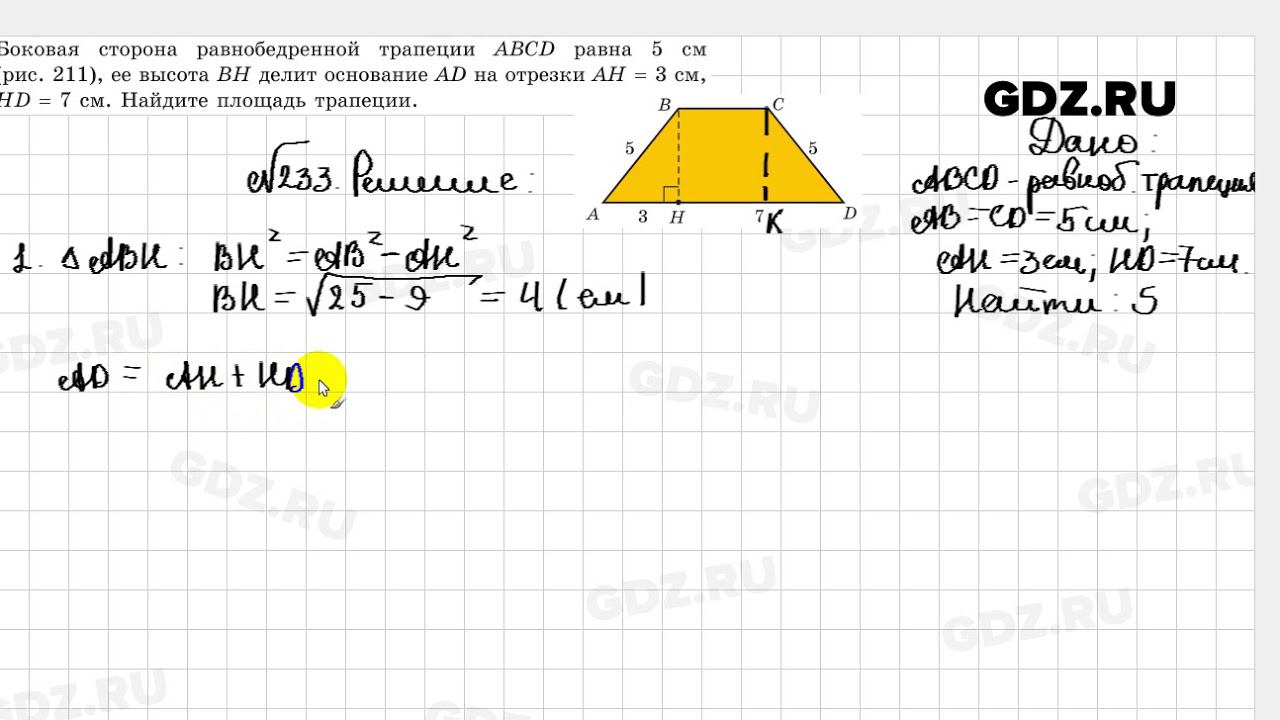 Боковая сторона равнобедренной трапеции ABCD равна 5 см
(рис. 211), ее высота BH делит основание AD на отрезки AH = 3 см,
HD = 7 см. Найдите площадь трапеции.
GDZ.RU
B
C
5
5
A
3
H
7
K
D
Дано:
ABCD - равноб. трапеция
AB = CD = 5 см;
AH = 3 см; HD = 7 см.
Найти: S
№233. Решение:
1. △ ABH: BH² = AB² - AH²
BH = √25 - 9 = 4 (см)
AD = AH + HD
GDZ.RU
GDZ.RU
GDZ.RU
GDZ.RU
GDZ.RU
GDZ.RU
GDZ.RU
GDZ.RU
GDZ.RU
GDZ.RU
GDZ.RU
GDZ.RU